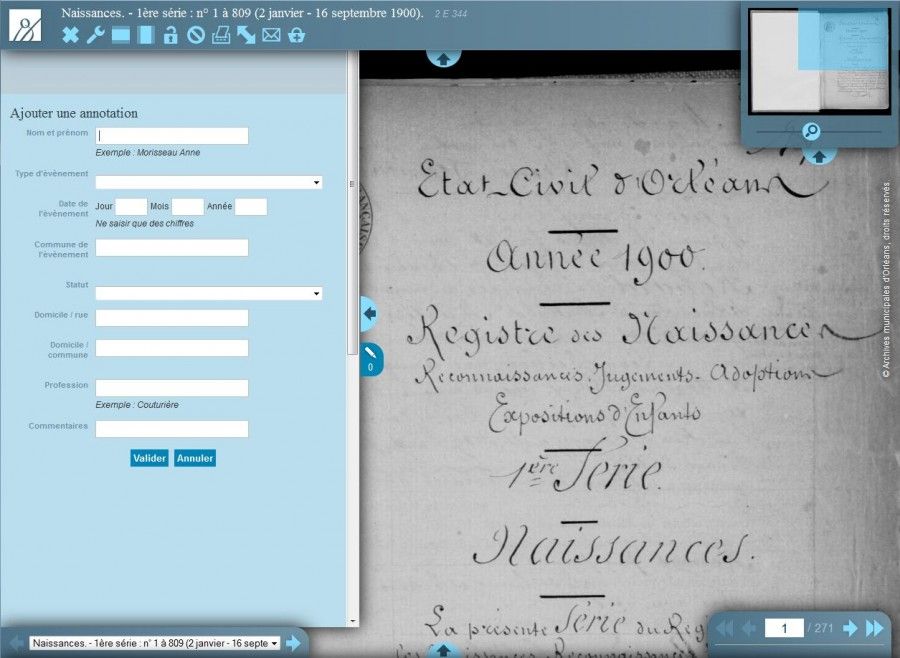 Naissances. - 1ère série : n° 1 à 809 (2 janvier - 16 septembre 1900). 2 E 344
Ajouter une annotation
Nom et prénom
Exemple : Morisseau Anne
Type d'évènement
Date de l'évènement
Jour Mois Année
Ne saisir que des chiffres
Commune de l'évènement
Statut
Domicile / rue
Domicile / commune
Profession
Exemple : Couturière
Commentaires
Valider Annuler
0
Etat-Civil d'Orléans
Année 1900.
Registre des Naissances
Reconnaissances. Jugements. Adoptions
Expositions d'Enfants
1ère Série.
Naissances.
La présente Série du Reg
© Archives municipales d'Orléans, droits réservés
Naissances. - 1ère série : n° 1 à 809 (2 janvier - 16 septe
1 / 271